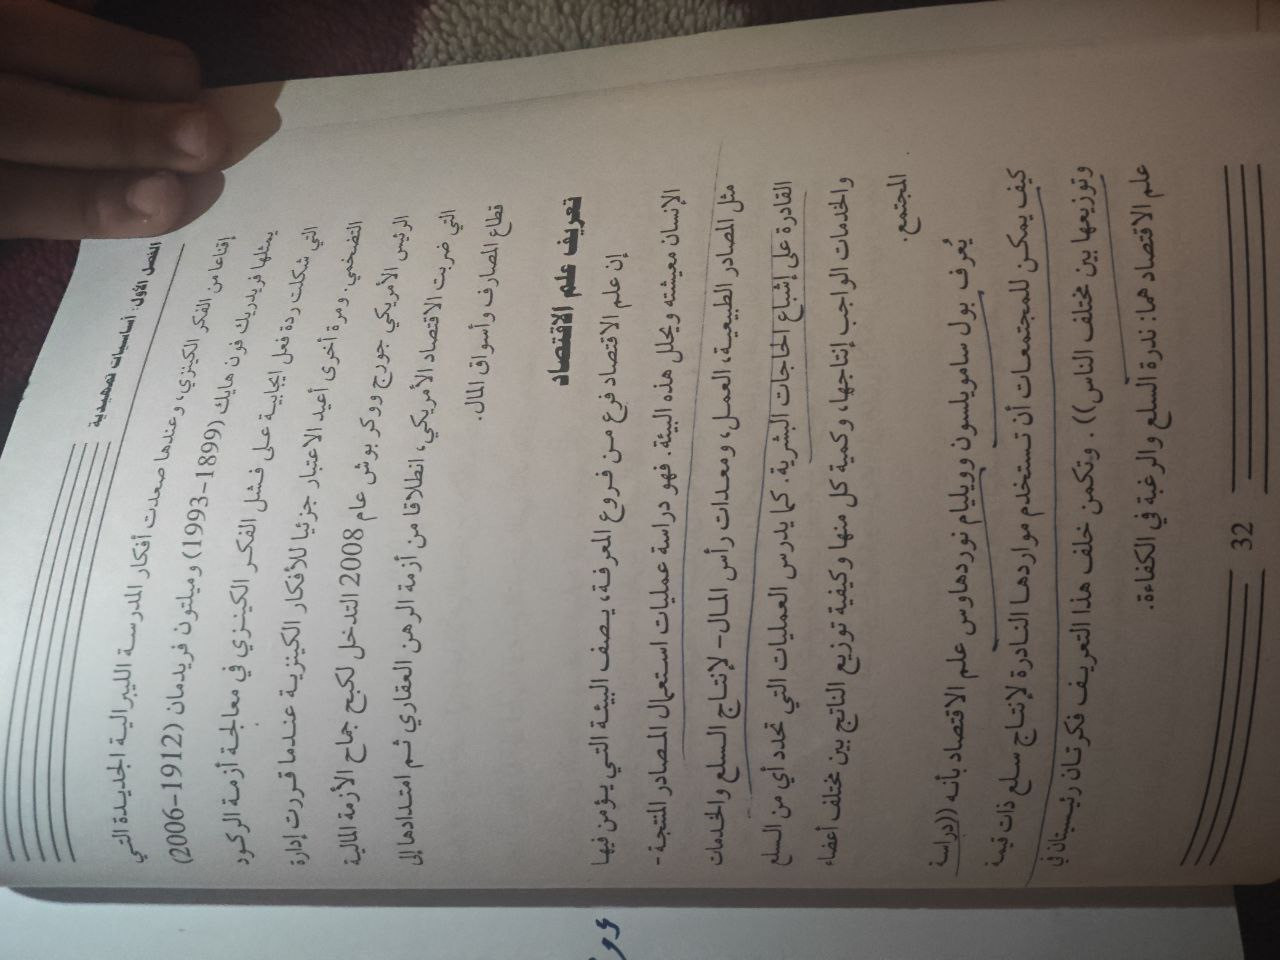 الفصل الأول: أساسيات تمهيدية
إقناعا من الفكر الكينزي، وعندها صعدت أفكار المدرسة الليبرالية الجديدة التي
يمثلها فريدريك فون هايك (1899-1993) وميلتون فريدمان (1912-2006)
التي شكلت ردة فعل ايجابية على فشل الفكر الكينزي في معالجة أزمة الركود
التضخمي. ومرة أخرى أعيد الاعتبار جزئيا للأفكار الكينزية عندما قررت إدارة
الرئيس الأمريكي جورج ووكر بوش عام 2008 التدخل لكبح جماح الأزمة المالية
التي ضربت الاقتصاد الأمريكي، انطلاقا من أزمة الرهن العقاري ثم امتدادها إلى
قطاع المصارف وأسواق المال.
تعريف علم الاقتصاد
إن علم الاقتصاد فرع من فروع المعرفة، يصف البيئة التي يؤمن فيها
الإنسان معيشته ويحلل هذه البيئة. فهو دراسة عمليات استعمال المصادر المنتجة -
مثل المصادر الطبيعية، العمل، ومعدات رأس المال - لإنتاج السلع والخدمات
القادرة على إشباع الحاجات البشرية. كما يدرس العمليات التي تحدد أي من السلع
والخدمات الواجب إنتاجها، وكمية كل منها وكيفية توزيع الناتج بين مختلف أعضاء
المجتمع.
يُعرف بول سامويلسون وويليام نوردهاوس علم الاقتصاد بأنه ((دراسة
كيف يمكن للمجتمعات أن تستخدم مواردها النادرة لإنتاج سلع ذات قيمة
وتوزيعها بين مختلف الناس)). وتكمن خلف هذا التعريف فكرتان رئيستان في
علم الاقتصاد هما: ندرة السلع والرغبة في الكفاءة.
32